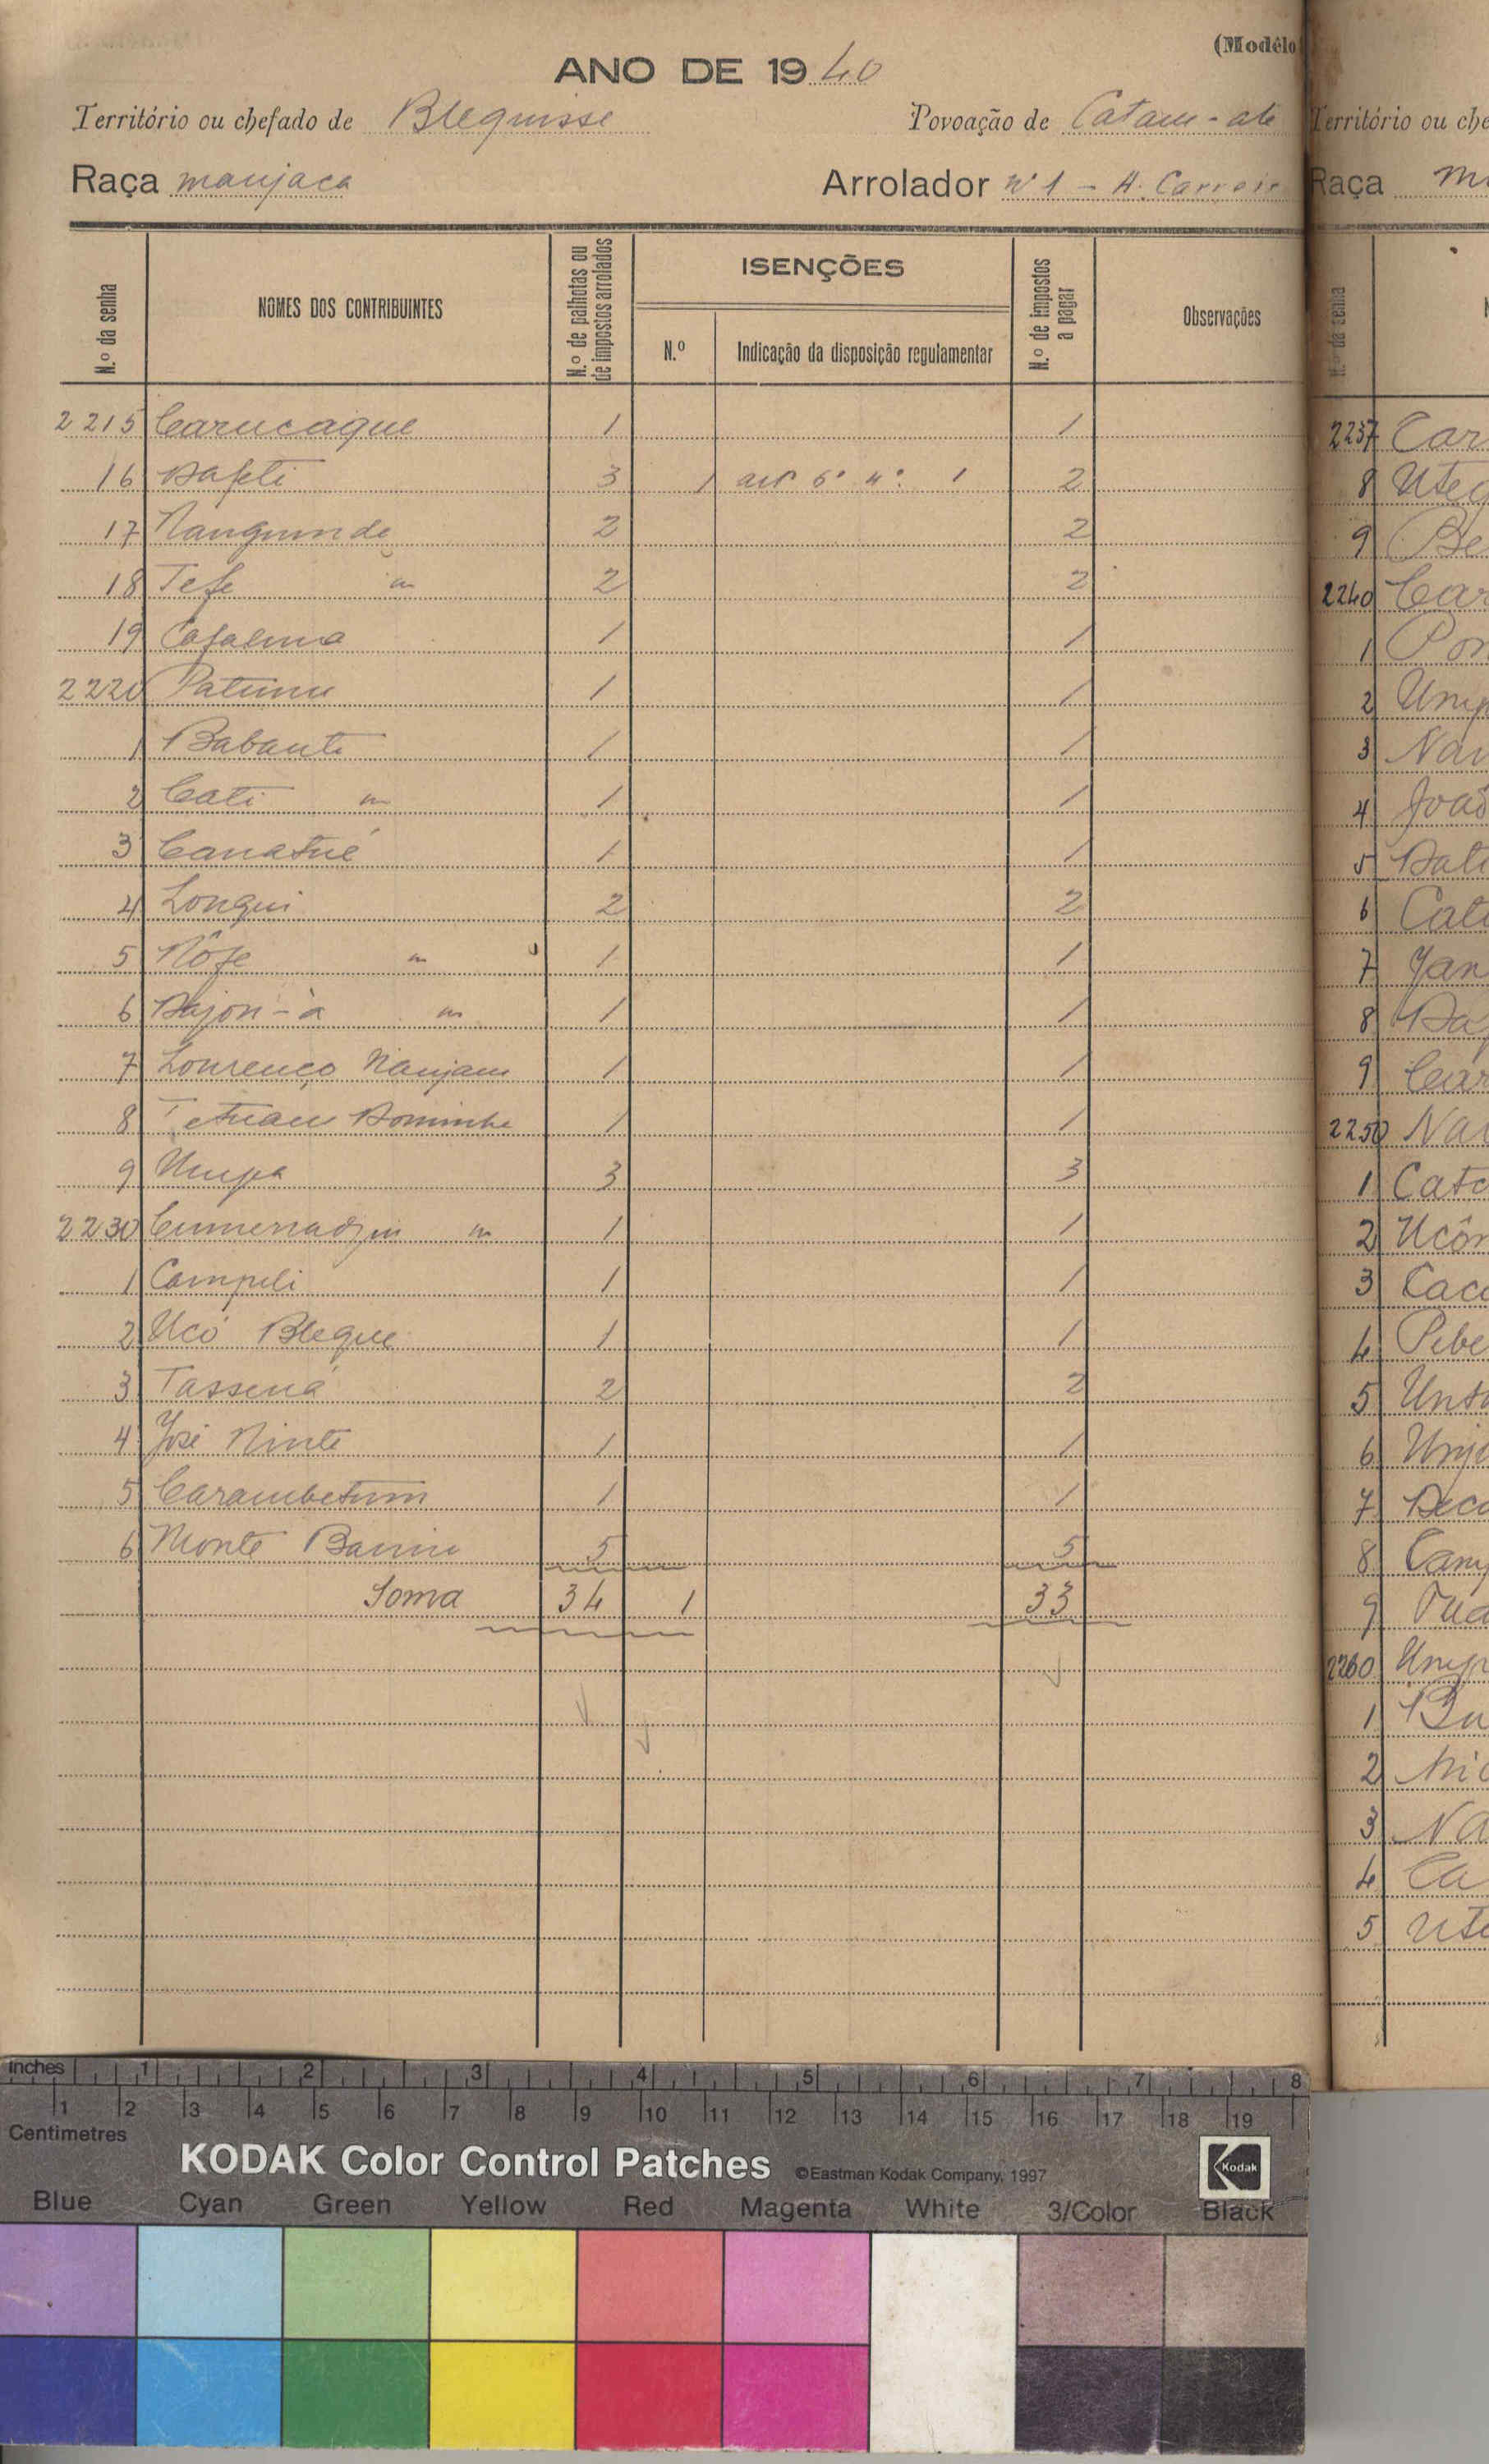 (Modêlo
ANO DE 1940
Território ou chefado de Blequisse Povoação de Catam-ate
Raça manjaca Arrolador Nº 1 - A. Carreir
N.º da senha NOMES DOS CONTRIBUINTES N.º de palhotas ou de impostos arrolados ISENÇÕES N.º de impostos a pagar Observações
N.º Indicação da disposição regulamentar
2215 Carucaque 1 1
16 Dafeti 3 1 artº 6º nº 1 2
17 2 2
18 Tefe 2 2
19 1 1
2220 1 1
1 Babanti 1 1
2 Cati 1 1
3 Canatué 1 1
4 Longui 2 2
5 Nôfe 1 1
6 Dajon-à 1 1
7 Lourenço Nanjam 1 1
8 1 1
9 Umpa 3 3
2230 1 1
1 Campili 1 1
2 Ucó Bleque 1 1
3 Tassená 2 2
4 José Ninte 1 1
5 Carambetum 1 1
6 Monte 5 5
Soma 34 1 33
Território ou che
Raça m
N.º da senha
2237 Car
8 Uteq
9 Be
2240 Car
1 Pon
2 Ump
3 Nan
4 João
5 Dati
6 Cati
7 Jan
8 Da
9 Car
2250 Na
1 Cato
2 Ucôn
3 Cac
4 Pebe
5 Unt
6 Unj
7 Dec
8 Cam
9
2260 Ump
1 Bu
2
3 Na
4 Ca
5 Ut
inches 1 2 3 4 5 6 7 8
1 2 3 4 5 6 7 8 9 10 11 12 13 14 15 16 17 18 19
Centimetres
KODAK Color Control Patches ©Eastman Kodak Company, 1997 Kodak
Blue Cyan Green Yellow Red Magenta White 3/Color Black